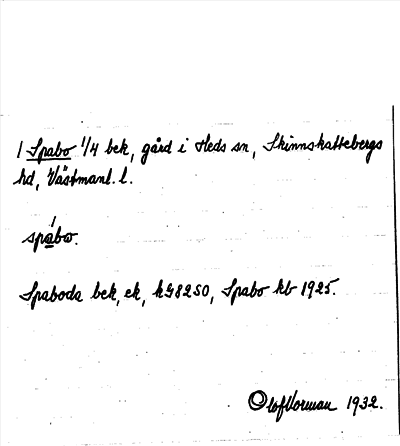 / Spabo 1/4 bek, gård i Heds sn, Skinnskattebergs
hd, Västmanl. l.
spábo.
Spaboda bek, ek, kB 250, Spabo kb 1925.
Olof Norman 1932.